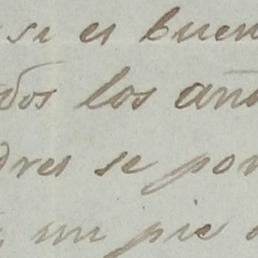 si es buen
dos los añ
dres se por
un pie